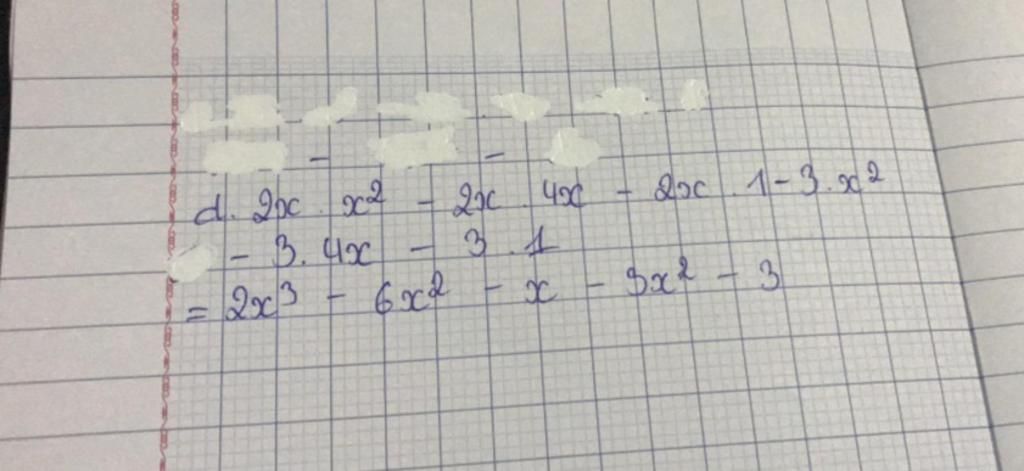 d. 2x . x² - 2x . 4x - 2x . 1 - 3 . x²
- 3 . 4x - 3 . 1
= 2x³ - 6x² - x - 3x² - 3